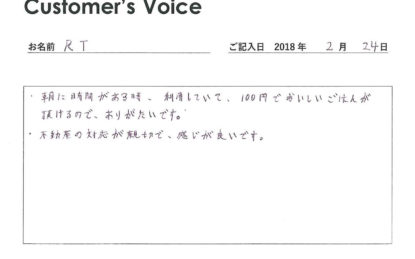 Customer's Voice
お名前 R T ご記入日 2018 年 2 月 24 日
・朝に時間がある時、利用していて、100円でおいしいごはんが
頂けるので、ありがたいです。
・不動産の対応が親切で、感じが良いです。